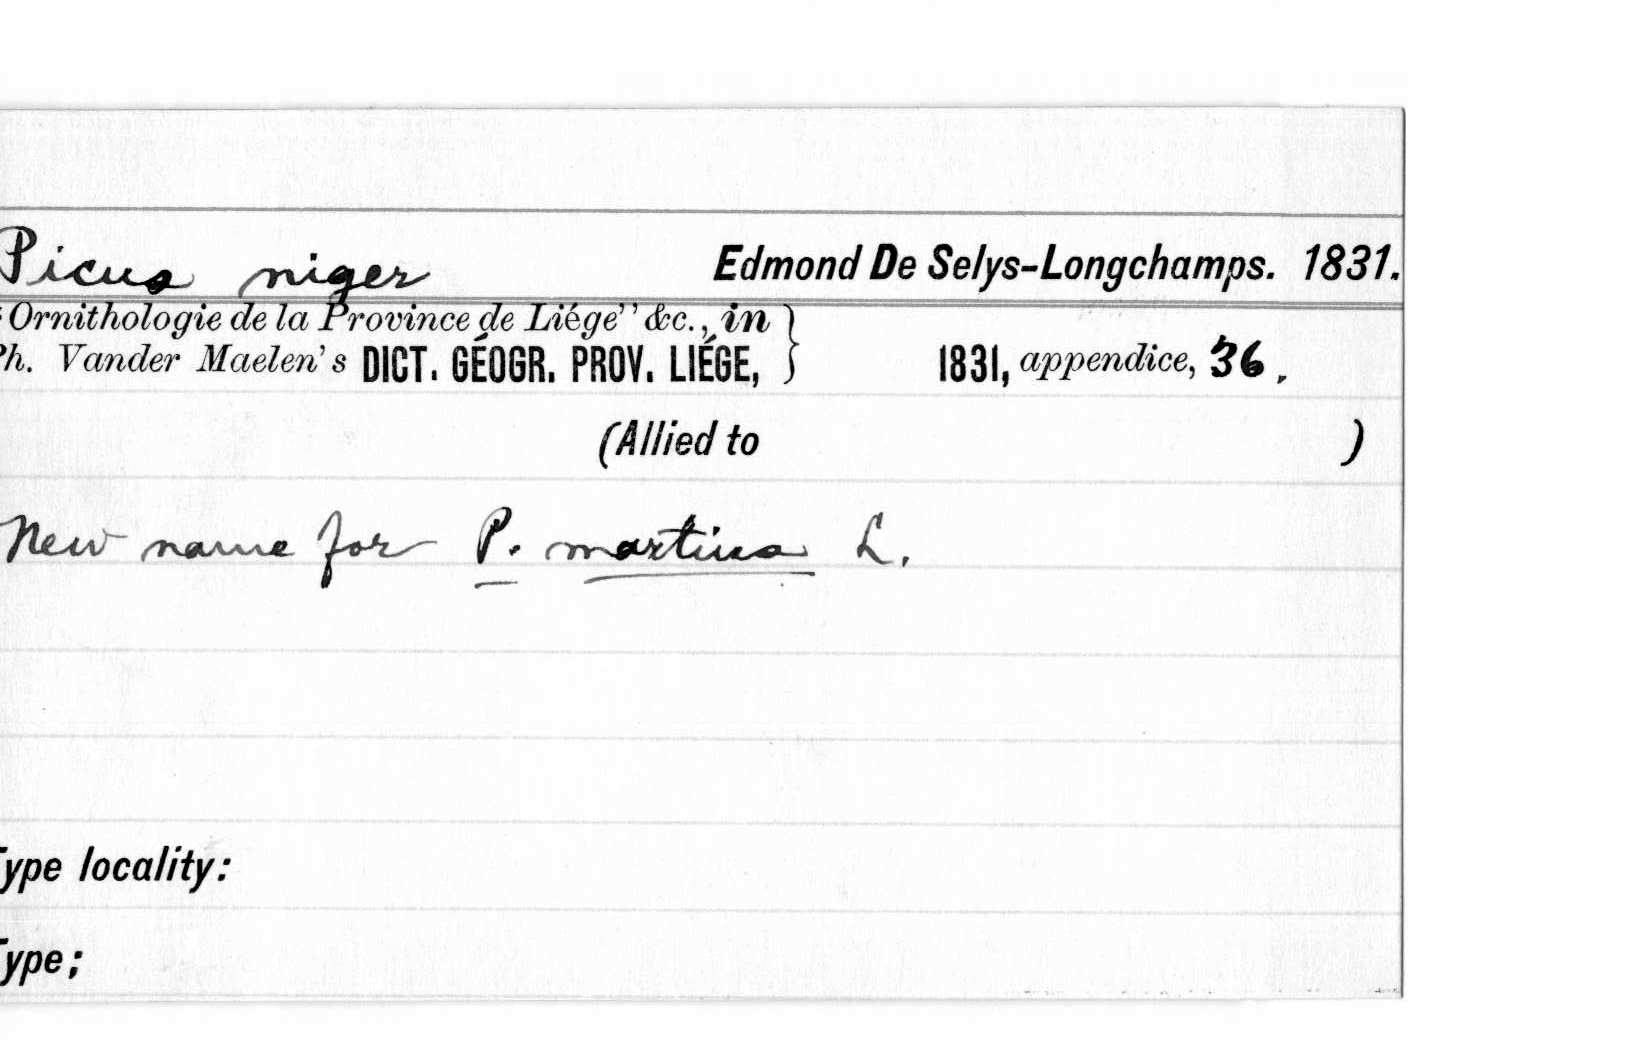 Picus niger Edmond De Selys-Longchamps. 1831.
Ornithologie de la Province de Liége" &c., in }
Ph. Vander Maelen's DICT. GÉOGR. PROV. LIÉGE, 1831, appendice, 36.
(Allied to )
New name for P. martius L.
Type locality:
Type;